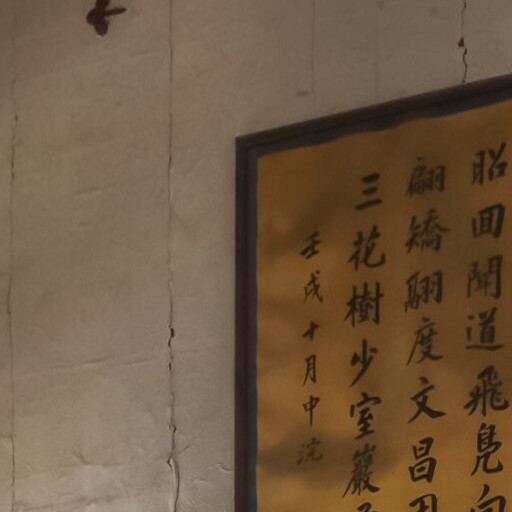 昭回聞道飛鳧向
翩矯翮度文昌
三花樹少室巖
壬戌十月中浣